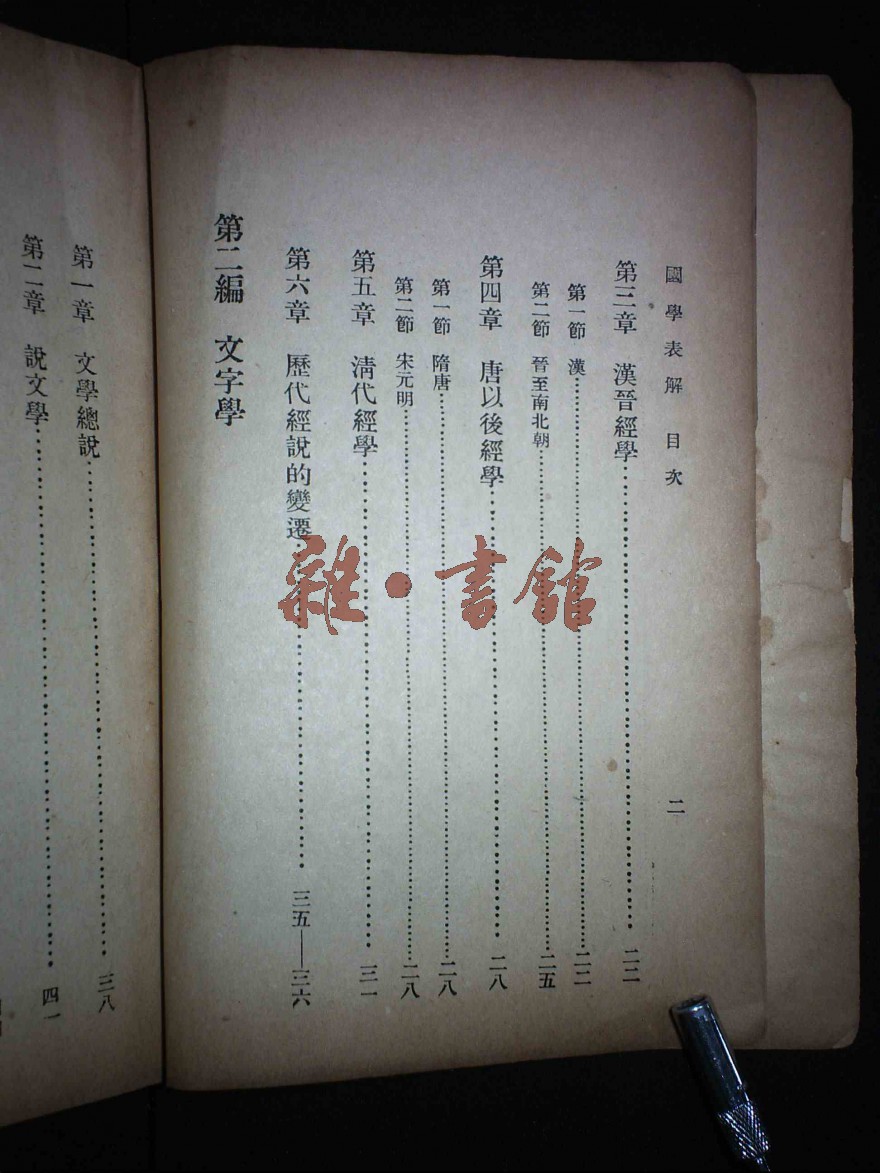 國學表解 目次 二
第三章 漢晉經學……二二
第一節 漢……二二
第二節 晉至南北朝……二五
第四章 唐以後經學……二八
第一節 隋唐……二八
第二節 宋元明……二八
第五章 淸代經學……三一
第六章 歷代經說的變遷……三五—三六
第二編 文字學
第一章 文學總說……三八
第二章 說文學……四一
雜·書館